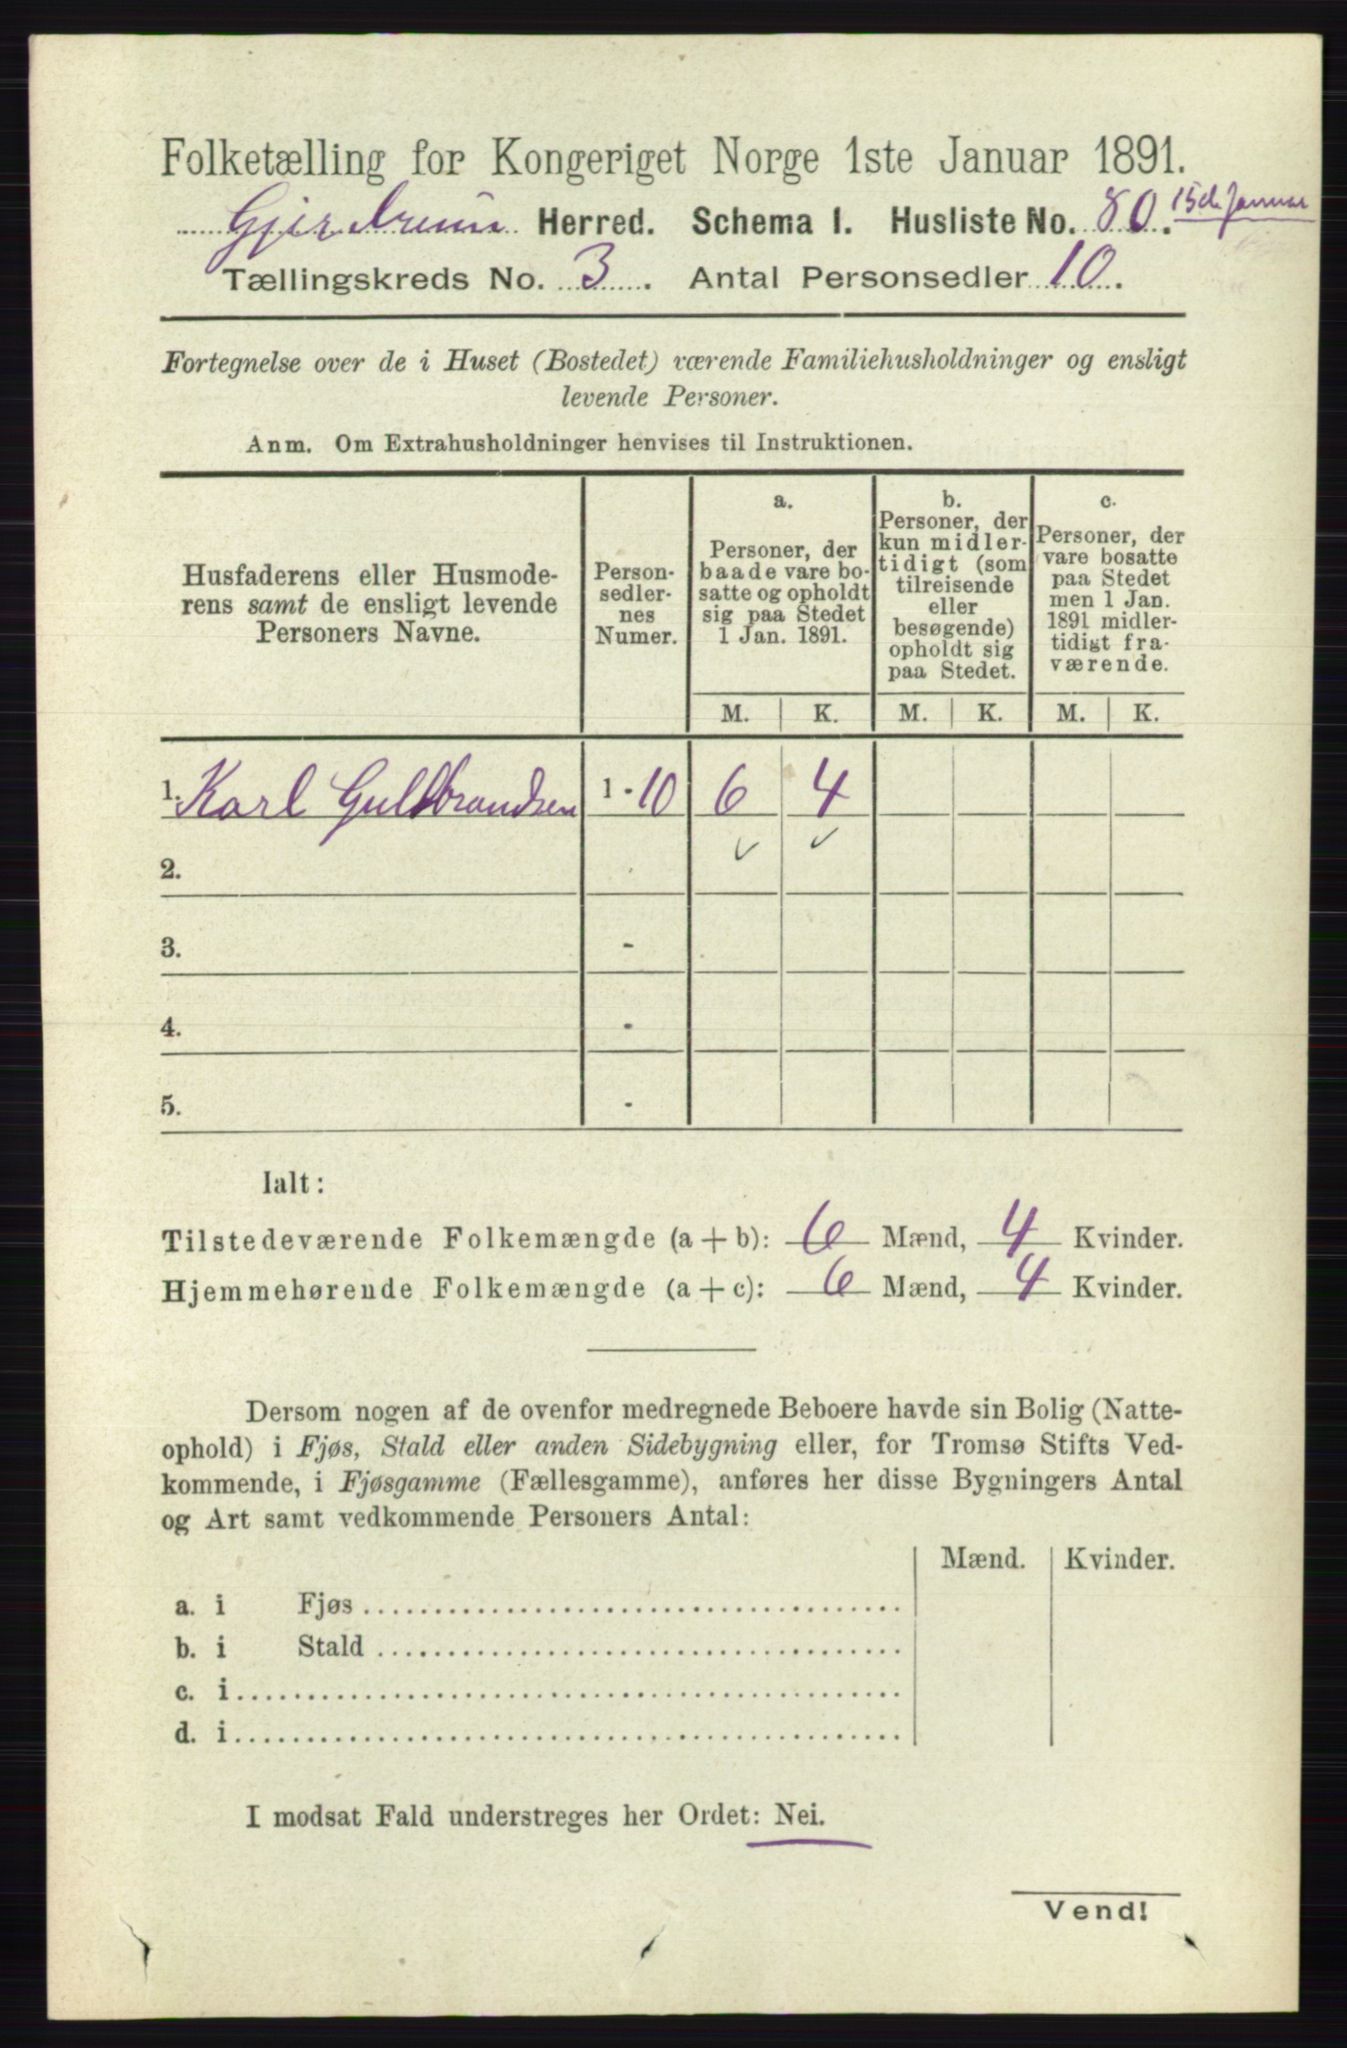 Folketælling for Kongeriget Norge 1ste Januar 1891.
Gjerdrum Herred. Schema I. Husliste No. 80. 15de Januar
Tællingskreds No. 3. Antal Personsedler 10.
Fortegnelse over de i Huset (Bostedet) værende Familiehusholdninger og ensligt
levende Personer.
Anm. Om Extrahusholdninger henvises til Instruktionen.
Husfaderens eller Husmode-
rens samt de ensligt levende
Personers Navne.
Person-
sedler-
nes
Numer.
a.
Personer, der
baade vare bo-
satte og opholdt
sig paa Stedet
1 Jan. 1891.
b.
Personer, der
kun midler-
tidigt (som
tilreisende
eller
besøgende)
opholdt sig
paa Stedet.
c.
Personer, der
vare bosatte
paa Stedet
men 1 Jan.
1891 midler-
tidigt fra-
værende.
M. K. M. K. M. K.
1. Karl Guldbrandsen 1 - 10 6 4
2.
3. -
4. -
5. -
Ialt:
Tilstedeværende Folkemængde (a + b): 6 Mænd, 4 Kvinder.
Hjemmehørende Folkemængde (a + c): 6 Mænd, 4 Kvinder.
Dersom nogen af de ovenfor medregnede Beboere havde sin Bolig (Natte-
ophold) i Fjøs, Stald eller anden Sidebygning eller, for Tromsø Stifts Ved-
kommende, i Fjøsgamme (Fællesgamme), anføres her disse Bygningers Antal
og Art samt vedkommende Personers Antal:
Mænd. Kvinder.
a. i Fjøs
b. i Stald
c. i
d. i
I modsat Fald understreges her Ordet: Nei.
Vend!